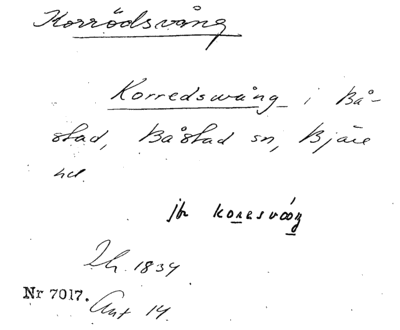 Korrödsvång
Korredswång i Bå-
stad, Båstad sn, Bjäre
hd.
jfr koresvåŋ
Lh. 1834
Nr 7017. Ant 14